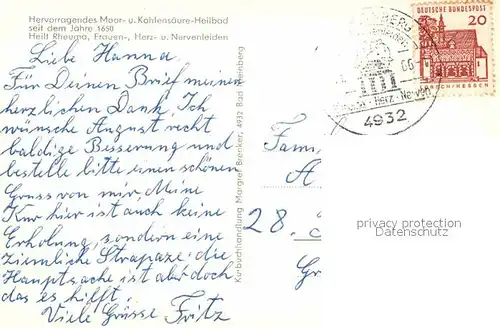 Hervorragendes Moor- u. Kohlensäure-Heilbad
seit dem Jahre 1650
Heilt Rheuma, Frauen-, Herz- u. Nervenleiden
Liebe Hanna.
Für Deinen Brief meinen
herzlichen Dank, Ich
wünsche August recht
baldige Besserung und
bestelle bitte einen schönen
Gruss von mir, Meine
Kur hier ist auch keine
Erholung, sondern eine
ziemliche Strapaze: die
Hauptsache ist aber doch
das es hilft.
Viele Grüsse Fritz
Kurbuchhandlung Margret Brenker, 4932 Bad Meinberg
Herz - Nerven
4932
DEUTSCHE BUNDESPOST
20
Fam.
A
28.
Gr
privacy protection
Datenschutz